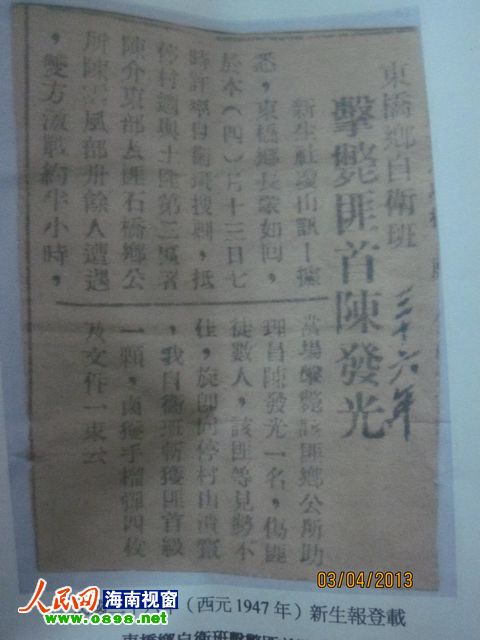 東橋鄉自衛班
三十六年
擊斃匪首陳發光
新生社瓊山訊—據
悉，東橋鄉長蒙如回，
於本（四）月十三日七
時許率自衛班搜剿，抵
停村適與土匪第二區署
陳介東部及匪石橋鄉公
所陳雲風部卅餘人遭遇
，雙方激戰約半小時，
當場擊斃該匪鄉公所助
理員陳發光一名，傷匪
徒數人，該匪等見勢不
佳，旋即向停村山潰竄
，我自衛班斬獲匪首級
一顆，鹵獲手榴彈四枚
及文件一束云
03/04/2013
人民网 海南视窗
年（西元1947年）新生報登載
東橋鄉自衛班擊斃匪